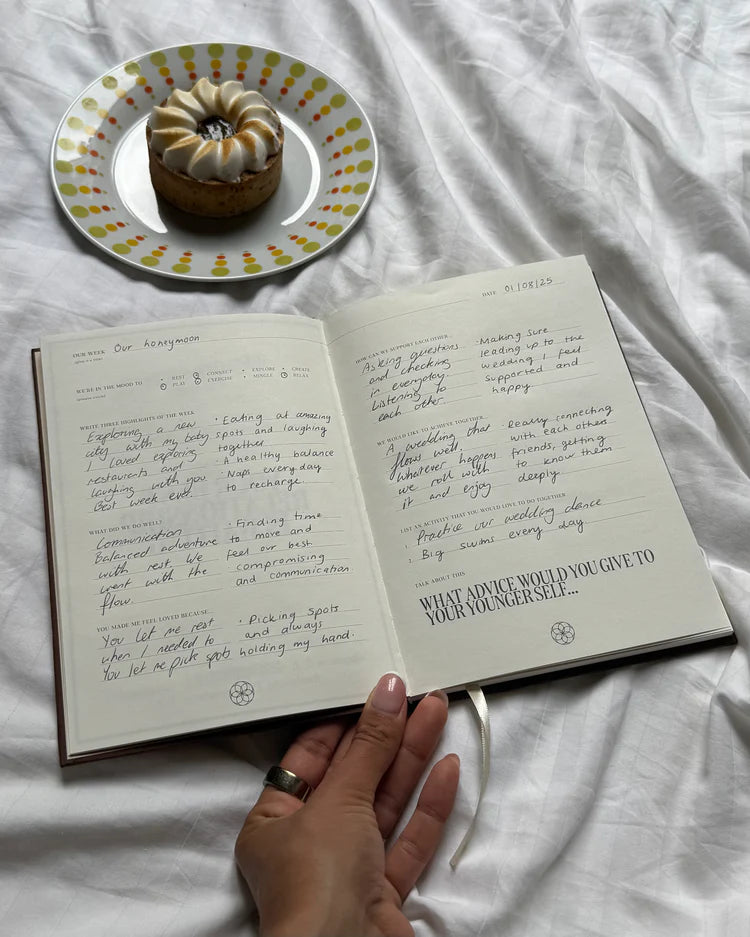 OUR WEEK Our honeymoon
WE'RE IN THE MOOD TO
REST CONNECT EXPLORE CREATE
PLAY EXERCISE MINGLE RELAX
WRITE THREE HIGHLIGHTS OF THE WEEK
Exploring a new
city with my baby
I loved exploring
restaurants and
laughing with you
Best week ever.
• Eating at amazing
spots and laughing
together
• A healthy balance
• Naps every day
to recharge.
WHAT DID WE DO WELL?
Communication
Balanced adventure
with rest We
went with the
flow.
• Finding time
to move and
feel our best
compromising
and communication.
YOU MADE ME FEEL LOVED BECAUSE
You let me rest
when I needed to
You let me pick spots
• Picking spots
and always
holding my hand.
DATE 01/08/25
HOW CAN WE SUPPORT EACH OTHER
Asking questions
and checking
in everyday.
Listening to
each other.
• Making sure
leading up to the
wedding I feel
supported and
happy.
WE WOULD LIKE TO ACHIEVE TOGETHER
A wedding that
flows well.
Whatever happens
we roll with
it and enjoy
• Really connecting
with each others
friends, getting
to know them
deeply.
LIST AN ACTIVITY THAT YOU WOULD LOVE TO DO TOGETHER
1. Practice our wedding dance
2. Big swims every day.
TALK ABOUT THIS
WHAT ADVICE WOULD YOU GIVE TO
YOUR YOUNGER SELF...